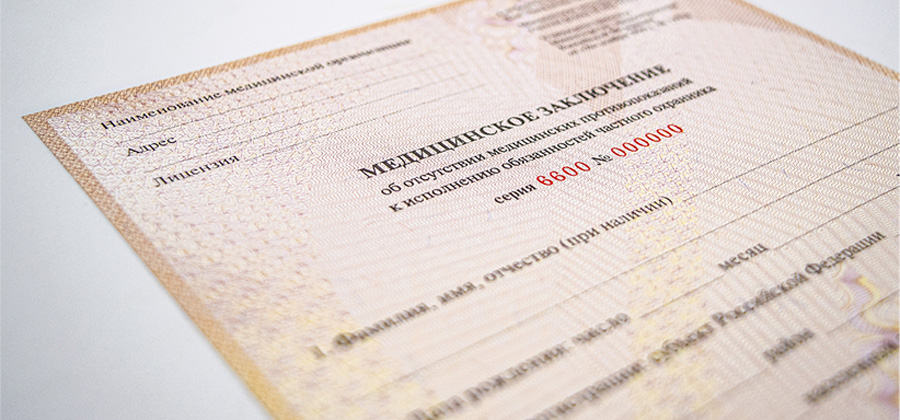 Наименование медицинской организации
Адрес
Лицензия
МЕДИЦИНСКОЕ ЗАКЛЮЧЕНИЕ
об отсутствии медицинских противопоказаний
к исполнению обязанностей частного охранника
серия 6600 № 000000
1. Фамилия, имя, отчество (при наличии)
Дата рождения: число месяц
субъект Российской Федерации
район